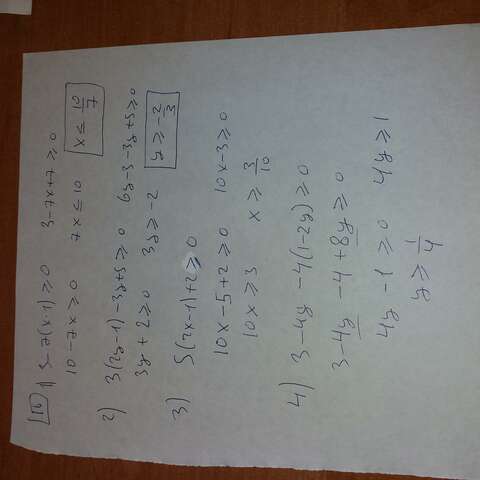 1) 3-7(x-1) ≥ 0 3-7x+7 ≥ 0
10-7x ≥ 0 7x ≤ 10 x ≤ 10/7
2) 3(2y-1)-3y+5 ≥ 0 6y-3-3y+5 ≥ 0
3y+2 ≥ 0 3y ≥ -2 y ≥ -2/3
3) 5(2x-1)+2 ≥ 0
10x-5+2 ≥ 0 10x-3 ≥ 0
10x ≥ 3 x ≥ 3/10
4) 3-4y-4(1-2y) ≥ 0
3-4y-4+8y ≥ 0
4y-1 ≥ 0 4y ≥ 1
y ≥ 1/4